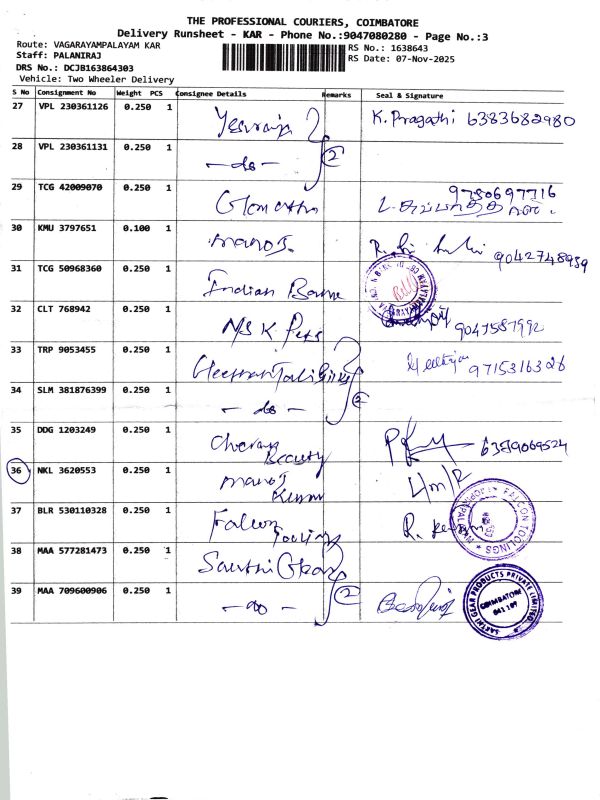 THE PROFESSIONAL COURIERS, COIMBATORE
Delivery Runsheet - KAR - Phone No.:9047080280 - Page No.:3
Route: VAGARAYAMPALAYAM KAR
RS No.: 1638643
Staff: PALANIRAJ
RS Date: 07-Nov-2025
DRS No.: DCJB163864303
Vehicle: Two Wheeler Delivery
S No Consignment No Weight PCS Consignee Details Remarks Seal & Signature
27 VPL 230361126 0.250 1 K. Pragathi 6383682980
28 VPL 230361131 0.250 1 - do - 2
29 TCG 42009070 0.250 1 9750697716
30 KMU 3797651 0.100 1 Manoj. 9042748959
31 TCG 50968360 0.250 1 Indian Bank
32 CLT 768942 0.250 1 M/S K Pets 9047587992
33 TRP 9053455 0.250 1 9715316326
34 SLM 381876399 0.250 1 - do - 2
35 DDG 1203249 0.250 1 Beauty 6389069524
36 NKL 3620553 0.250 1 Manoj Kumar
37 BLR 530110328 0.250 1 Falcon Toolings R.
FALCON TOOLINGS
38 MAA 577281473 0.250 1 Sakthi Gear
39 MAA 709600906 0.250 1 - do - 2
SAKTHI GEAR PRODUCTS PRIVATE LIMITED
COIMBATORE
641 107